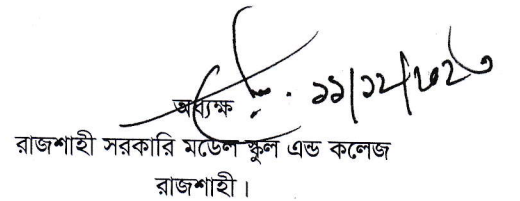 ১১/১২/২০২৩
অধ্যক্ষ
রাজশাহী সরকারি মডেল স্কুল এন্ড কলেজ
রাজশাহী।